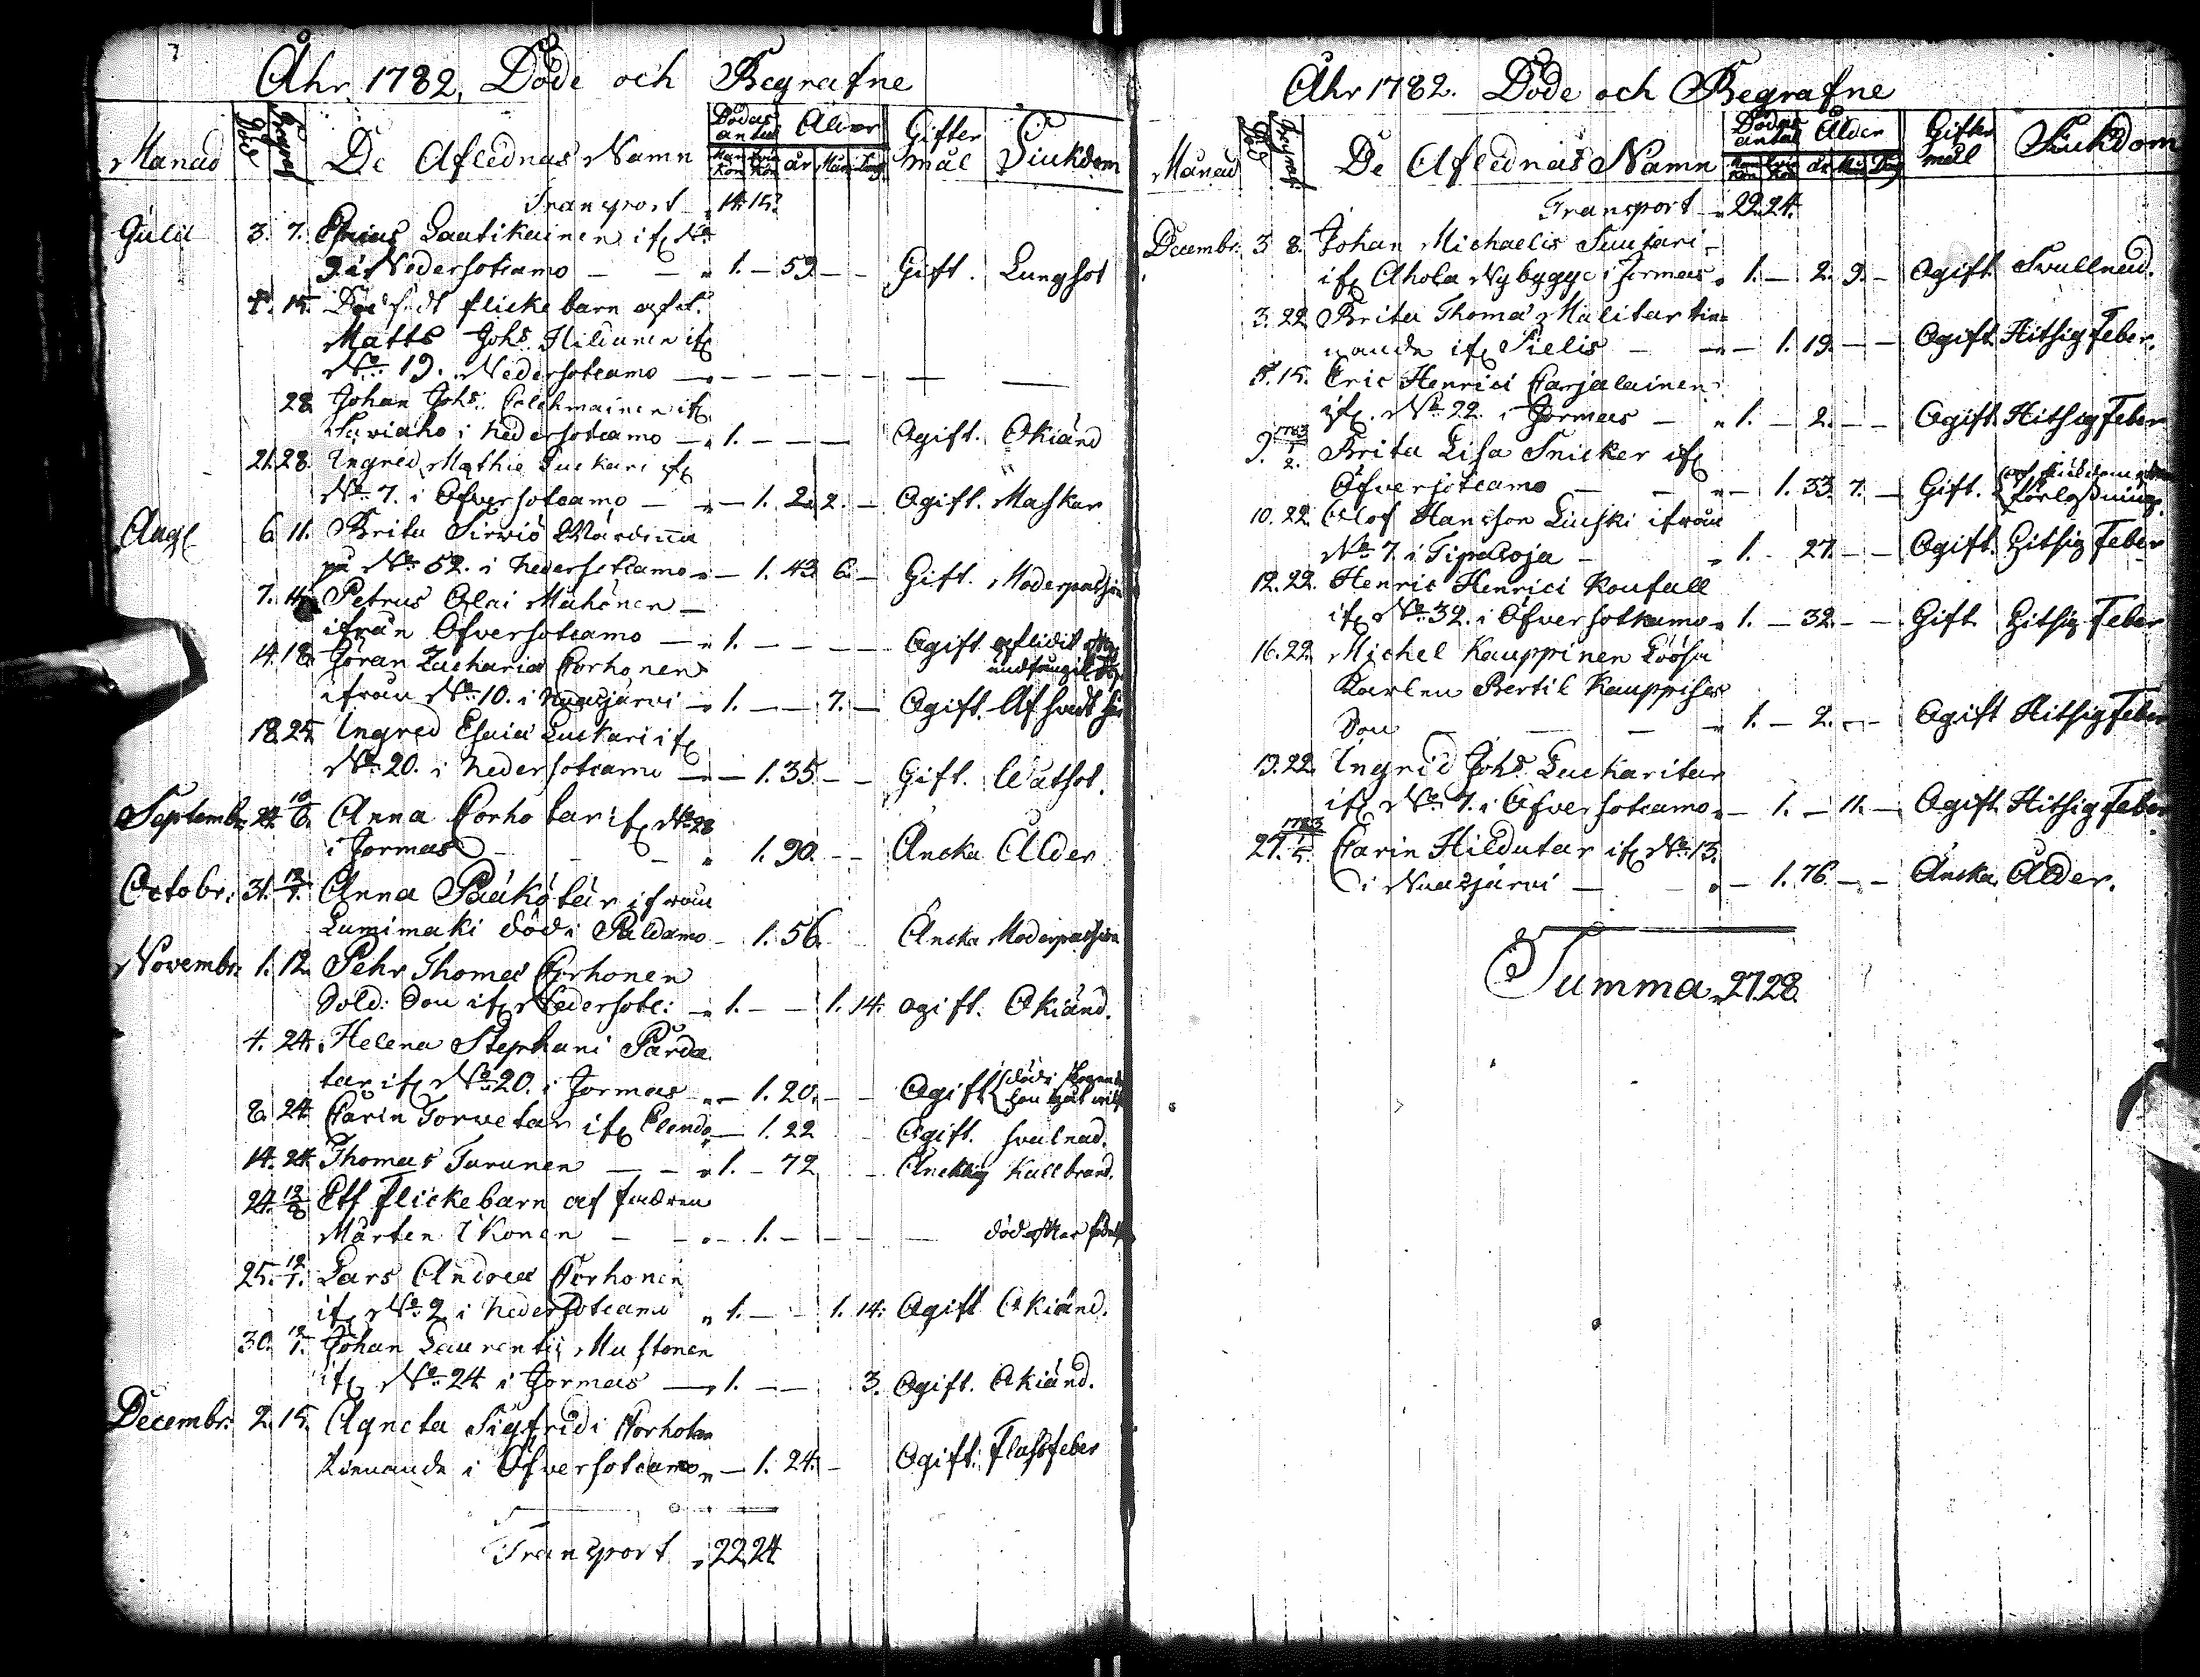 Åhr 1782. Döde och Begrafne
Månad Död Begraf De Aflednas Namn Dödas antal Man kön Qvin kön Ålder år Mån Dag Gifter mål Siukdom
Transport 14. 15.
Julii 3. 7. Lautikainen if N:o
9 i Nedersotcamo — 1. — 59 — — Gift. Lungsot
7. 15. Dödfödt flicke barn af
Matts Joh:s Hildunen if
N:o 19. Nedersotcamo — — — — — —
28. Johan Joh:s if
i Nedersotcamo — 1. — — — Ogift. Okiänd
21. 28. Ingred Mathiæ Luckari if
N:o 7. i Öfversotcamo — — 1. 2. 2. — Ogift. Maskar
Aug 6. 11. Brita Sirviö Värdinna
på N:o 52. i Nedersotcamo — 1. 43. 6. — Gift. Moderpassion
7. Petrus Olai Mähönen —
ifrån Öfversotcamo — 1. — — — — Ogift aflidit
undfångit
14. 18. Göran Zachariæ Corhonen
ifrån N:o 10. i Nuasjärvi — 1. — — 7. — Ogift. Af
18. 25. Ingred Esaiæ Luckari if
N:o 20. i Nedersotcamo — — 1. 35 — — Gift. Watsot.
Septembr. 24. 10/6. Anna Corhotar if N:o 28
i Jormas — — 1. 90. — — Äncka Ålder
Octobr: 31. 12/1. Anna Pääkötär ifrån
Lumimaki död i Paldamo — 1. 56. Äncka Moderpassion
Novembr. 1. 12. Pehr Thomæ Corhonen
Sold: Son if Nedersotc: — 1. — — 1. 14. ogift. Okiänd.
4. 24. Helena Stephani Pärdä
tar if N:o 20. i Jormas — — 1. 20. — — Ogift död i
8. 24. Carin Torvetar if — 1. 22 Ogift. svulnad.
14. 24. Thomas Turunen — — 1. — 72 — Kallbrand.
24. 12/8 Ett flickebarn af fadren
Mårten Ikonen — — 1. — — — — död efter
25. 12/1. Lars Andreæ Corhonen
if N:o 2 i Nedersotcamo 1. — 1. 14. Ogift Okiänd.
30. 12/1. Johan Laurentii Mustonen
if N:o 24 i Jormas — 1. — — 3. Ogift. Okiänd.
Decembr: 2. 15. Agneta Sigfridi Corhotar
tienande i Öfversotcamo — 1. 24. — Ogift. Flässfeber
Transport 22 24
Åhr 1782. Döde och Begrafne
Månad Död Begraf De Aflednas Namn Dödas antal Man kön Qvin kön Ålder år Mån Dag Gifter mål Siukdom
Transport 22. 24.
Decembr. 3 8. Johan Michaelis Suutari —
if Ahola Nybygge i Jormas 1. — 2. 9. — Ogift. Svullnad.
3. 22. Brita Thomæ Malitar tie-
nande if Sielis — — 1. 19. — — Ogift. Hitsig Feber.
5. 15. Eric Henrici Carjalainen
if. N:o 22 i Jormas — 1. — 2. — — Ogift. Hitsig Feber
9. 1783 1/2. Brita Lisa Snicker if
Öfversotcamo — — 1. 33. 7. — Gift. förlossning.
10. 22. Olof Hansson Liuski ifrån
N:o 7. i Tipasoja — 1. — 27. — — Ogift. Hitsig Feber
12. 22. Henric Henrici Koufall
if N:o 32. i Öfversotkamo 1. — 32. — — Gift Hitsig Feber
16. 22. Michel Kauppinen Lösa
Karlen Bertil Kauppises
Son — — — 1. — 2. — — Ogift Hitsig Feber
19. 22. Ingrid Joh:s Luckaritar
if N:o 7. i Öfversotcamo — 1. — 11. — Ogift. Hitsig Feber
27. 1783 1/5. Carin Hildutar if N:o 13.
i Nuasjärvi — — 1. 76. — — Äncka. Ålder.
Summa 27. 28.